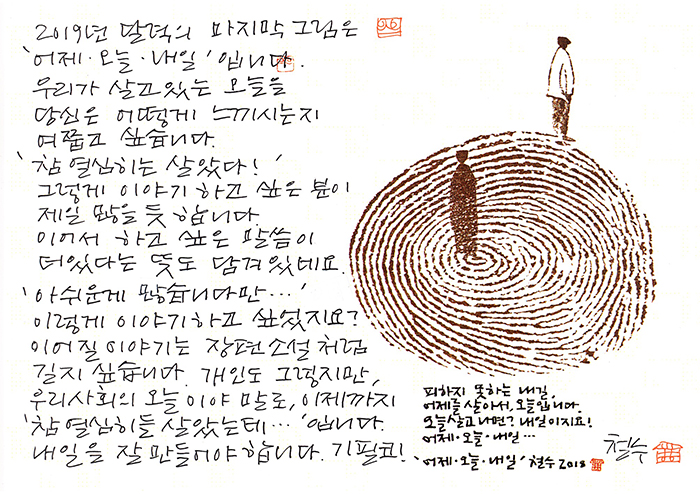 2019년 달력의 마지막 그림은
'어제·오늘·내일' 입니다.
우리가 살고있는 오늘을
당신은 어떻게 느끼시는지
여쭙고 싶습니다.
'참 열심히는 살았다!'
그렇게 이야기 하고 싶은 분이
제일 많을 듯 합니다.
이어서 하고 싶은 말씀이
더있다는 뜻도 담겨있네요.
'아쉬운게 많습니다만···'
이렇게 이야기하고 싶었지요?
이어질 이야기는 장편소설처럼
길지 싶습니다. 개인도 그렇지만,
우리사회의 오늘이야 말로, 이제까지
'참 열심히들 살았는데···' 입니다.
내일을 잘 만들어야 합니다. 기필코!
피하지 못하는 내길,
어제를 살아서, 오늘입니다.
오늘살고나면? 내일이지요!
어제·오늘·내일···
'어제·오늘·내일' 철수 2018
철수